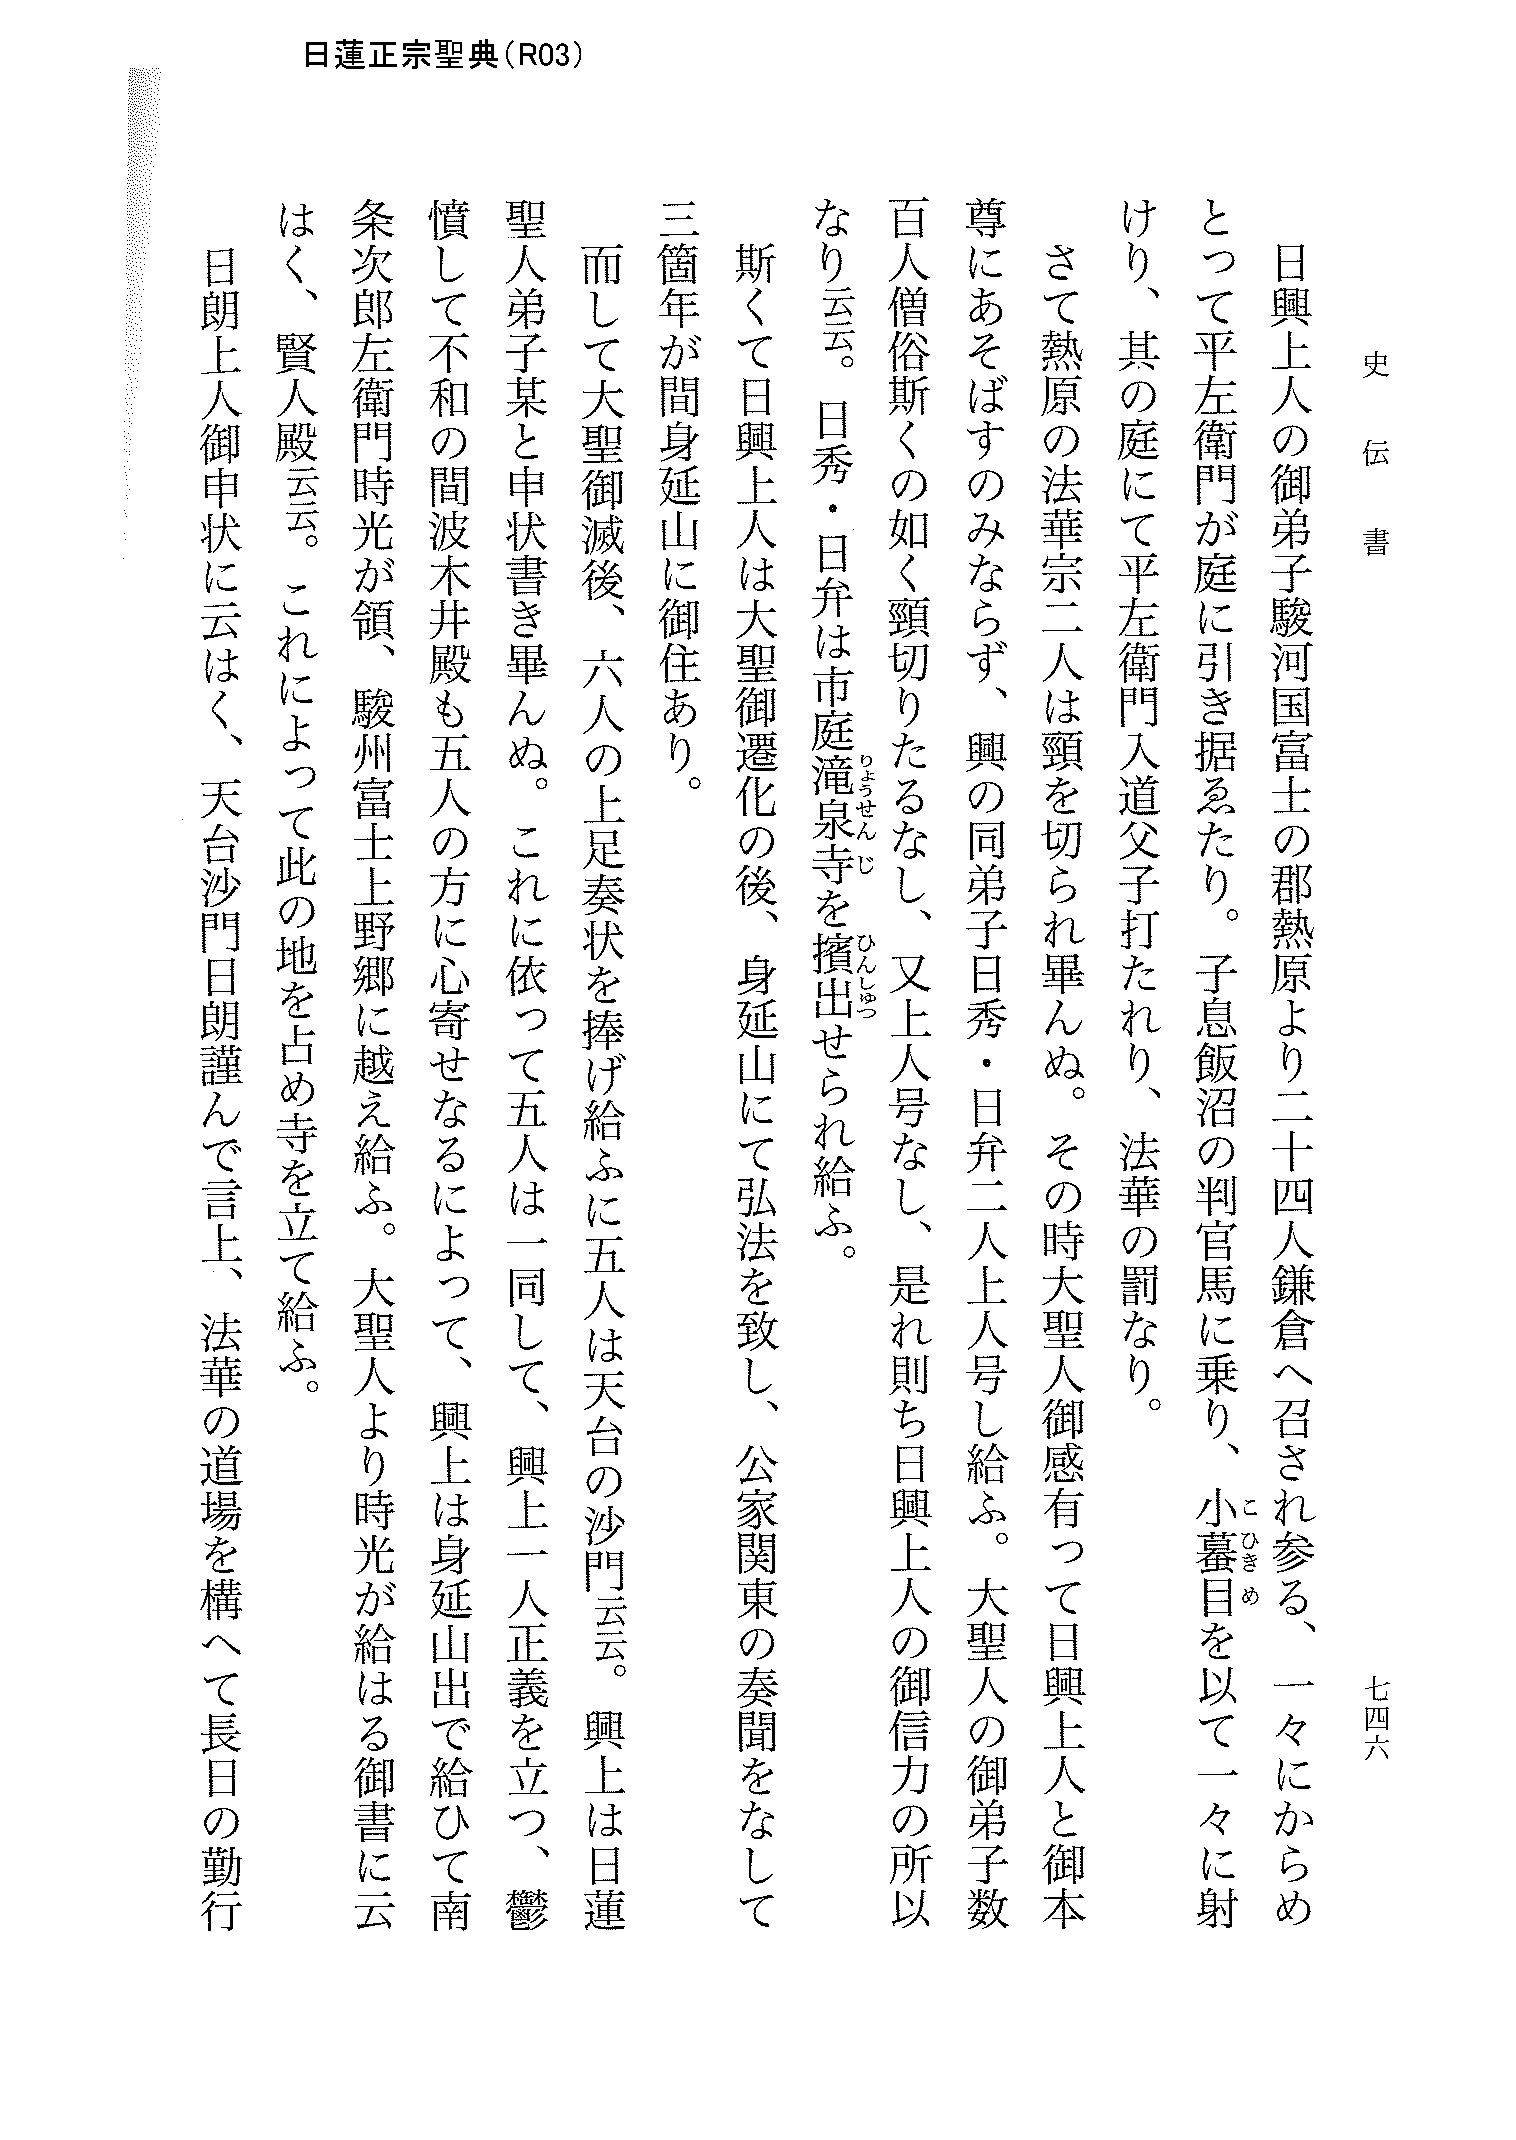 日蓮正宗聖典(R03)
史伝書
七四六
日興上人の御弟子駿河国富士の郡熱原より二十四人鎌倉へ召され参る、一々にからめ
とって平左衛門が庭に引き据ゑたり。子息飯沼の判官馬に乗り、小蟇目を以て一々に射
こひきめ
けり、其の庭にて平左衛門入道父子打たれり、法華の罰なり。
さて熱原の法華宗二人は頸を切られ畢んぬ。その時大聖人御感有って日興上人と御本
尊にあそばすのみならず、興の同弟子日秀・日弁二人上人号し給ふ。大聖人の御弟子数
百人僧俗斯くの如く頸切りたるなし、又上人号なし、是れ則ち日興上人の御信力の所以
なり云云。日秀・日弁は市庭滝泉寺を擯出せられ給ふ。
りょうせんじ ひんしゅつ
斯くて日興上人は大聖御遷化の後、身延山にて弘法を致し、公家関東の奏聞をなして
三箇年が間身延山に御住あり。
而して大聖御滅後、六人の上足奏状を捧げ給ふに五人は天台の沙門云云。興上は日蓮
聖人弟子某と申状書き畢んぬ。これに依って五人は一同して、興上一人正義を立つ、鬱
憤して不和の間波木井殿も五人の方に心寄せなるによって、興上は身延山出で給ひて南
条次郎左衛門時光が領、駿州富士上野郷に越え給ふ。大聖人より時光が給はる御書に云
はく、賢人殿云云。これによって此の地を占め寺を立て給ふ。
日朗上人御申状に云はく、天台沙門日朗謹んで言上、法華の道場を構へて長日の勤行